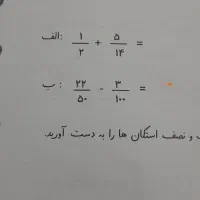 الف: ۱/۲ + ۵/۱۴ =
ب: ۲۲/۵۰ - ۳/۱۰۰ =
و نصف استکان ها را به دست آورید.